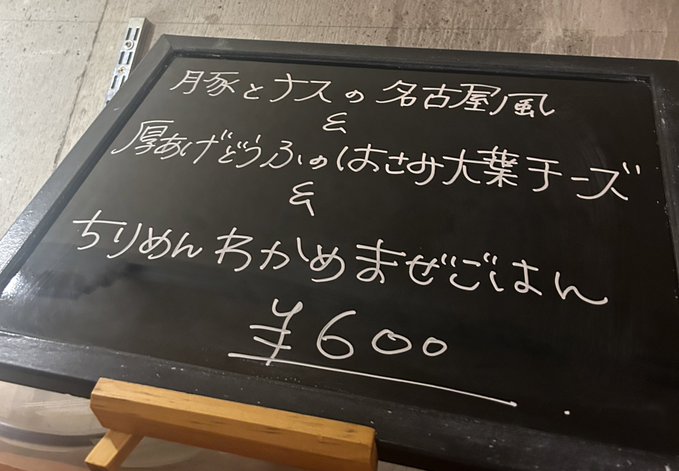 豚とナスの名古屋風
&
厚あげどうふのはさみ大葉チーズ
&
ちりめんわかめまぜごはん
¥600